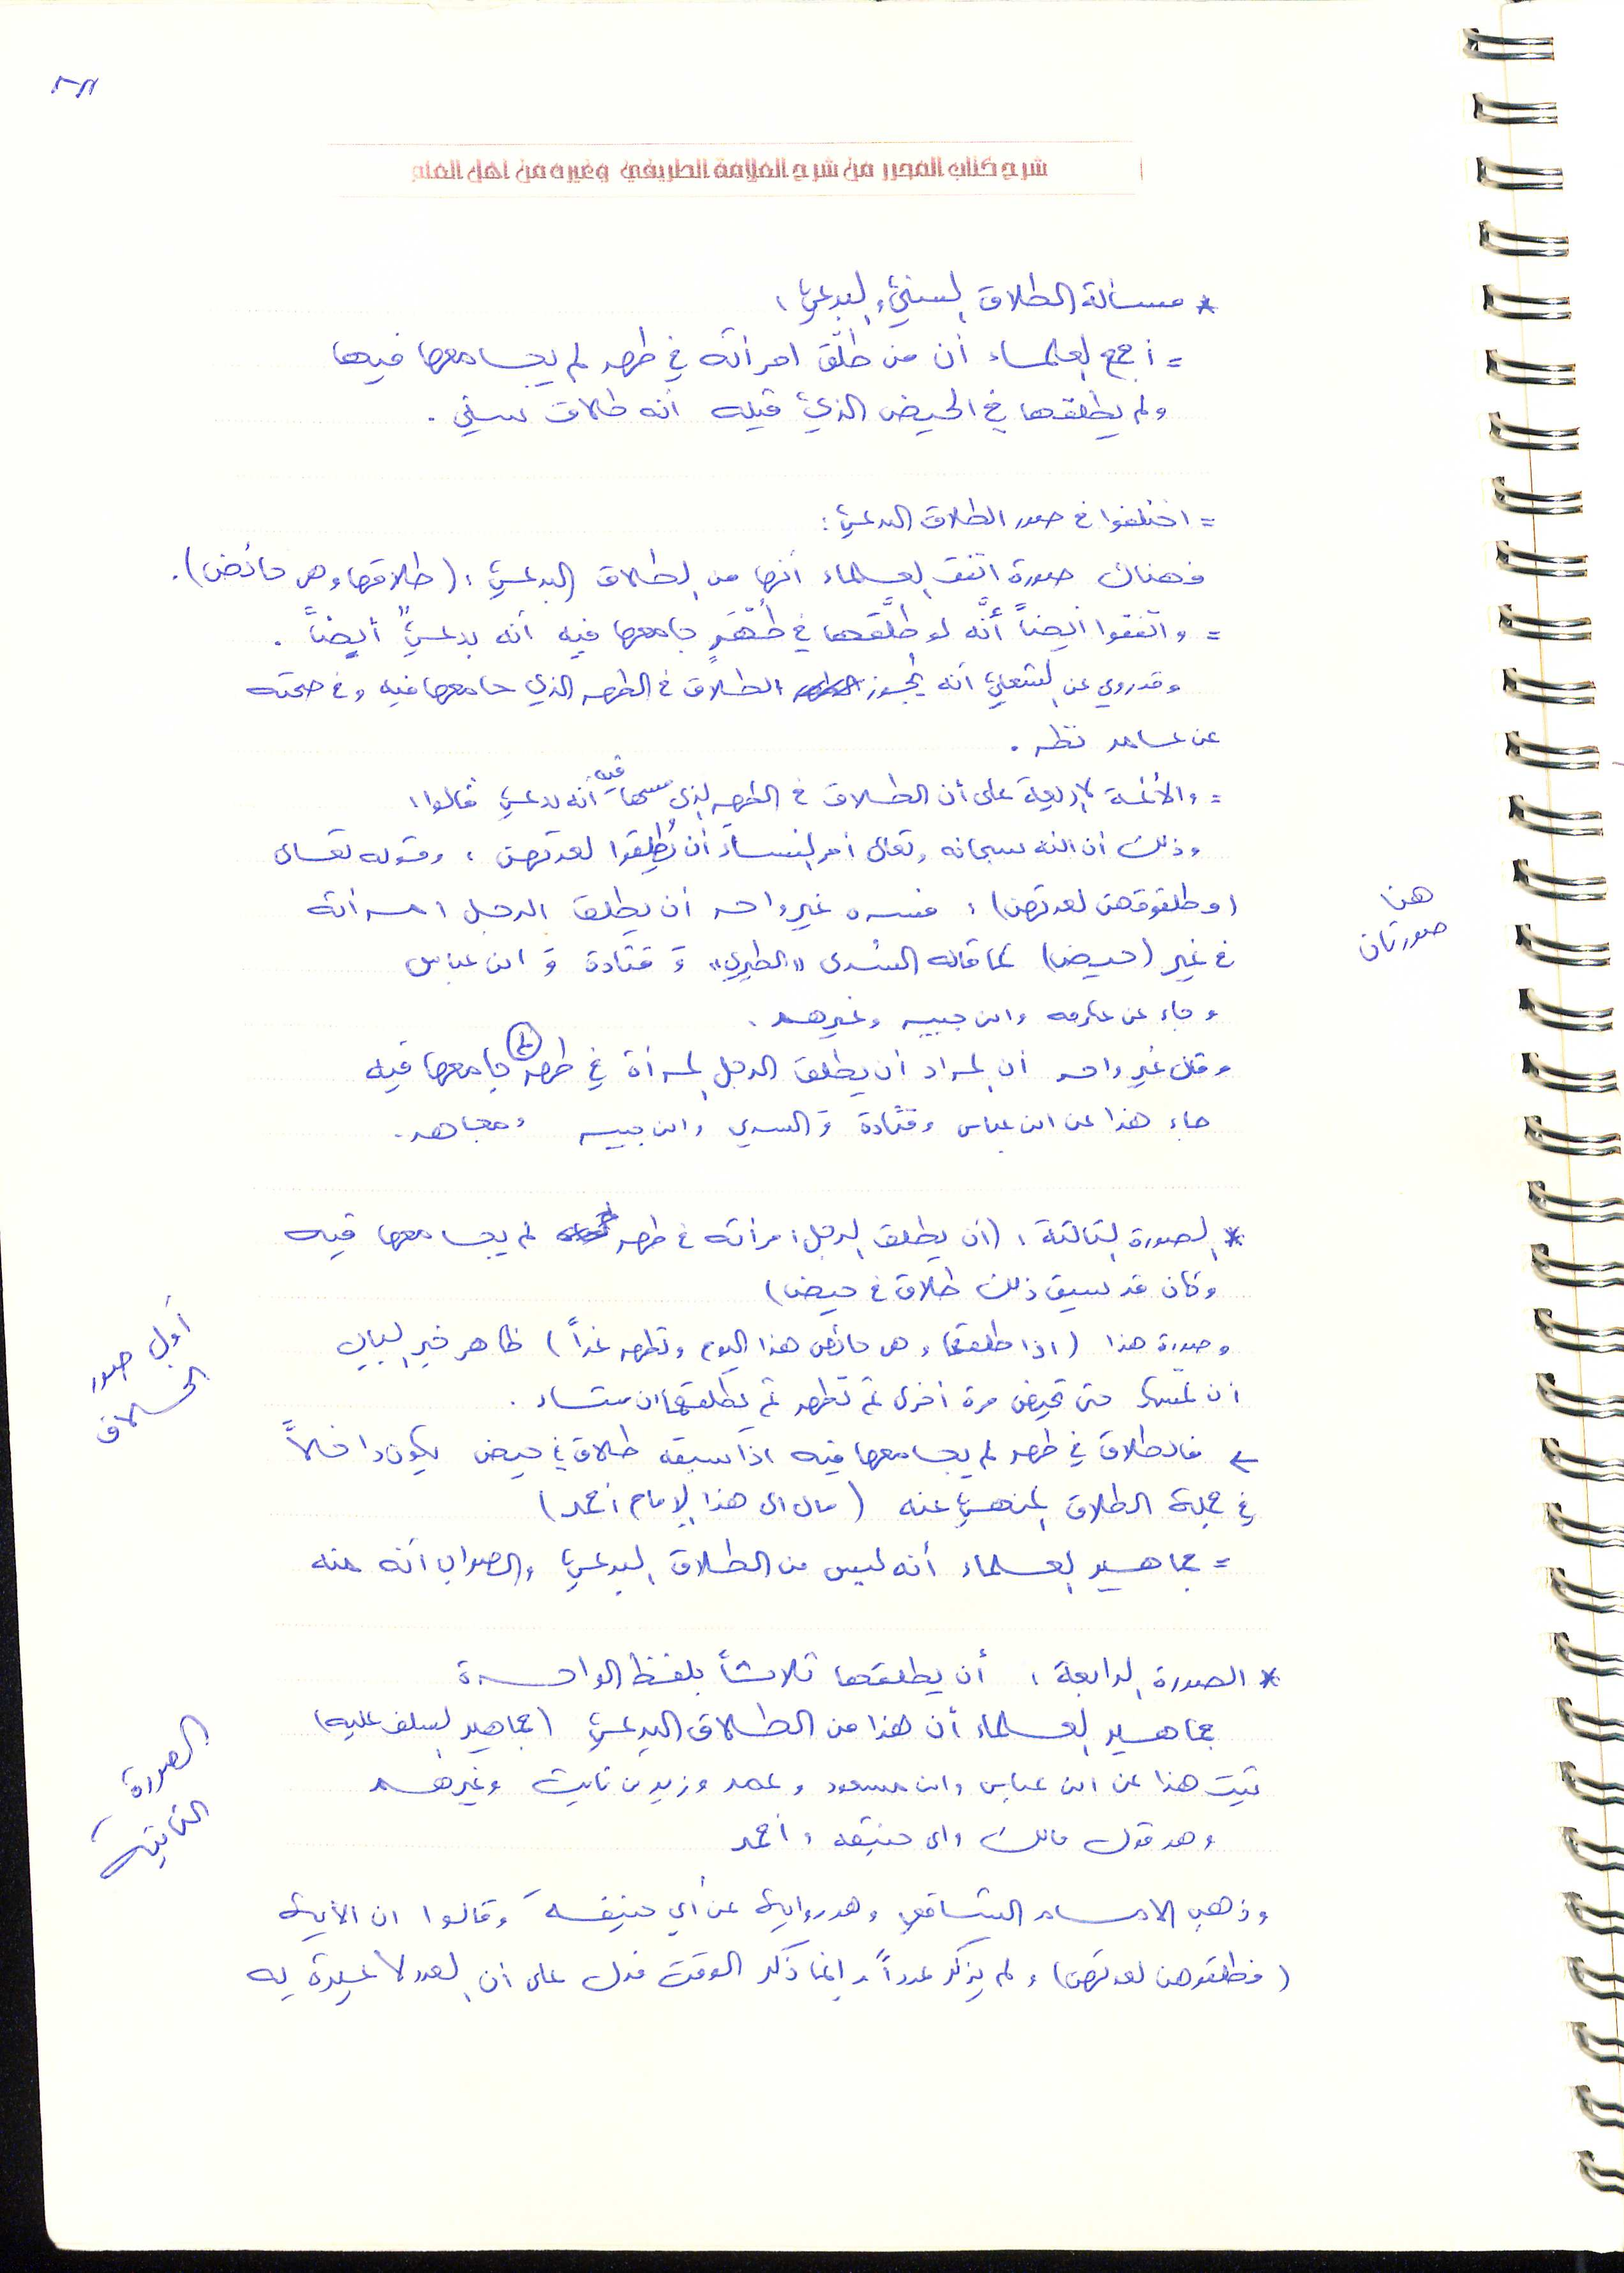 شرح كتاب المحرر من شرح العلامة الطريفي وغيره من اهل العلم
* مسألة الطلاق السني والبدعي:
= أجمع العلماء أن من طلّق امرأته في طهر لم يجامعها فيها
ولم يطلقها في الحيض الذي قبله أنه طلاق سني.
= اختلفوا في صور الطلاق البدعي:
فهناك صورة اتفق العلماء أنها من الطلاق البدعي: (طلاقها وهي حائض).
= واتفقوا أيضاً أنَّه لو طلَّقها في طُهْرٍ جامعها فيه أنه بدعيٌ أيضاً.
وقد روي عن الشعبي أنه يجوز الطلاق في الطهر الذي جامعها فيه وفي صحته
عن عامر نظر.
= والأئمة الأربعة على أن الطلاق في الطهر الذي مسها فيه أنه بدعي قالوا:
وذلك أن الله سبحانه وتعالى أمر النساء أن يُطلِقوا لعدتهن، وقوله تعالى
(وطلقوهن لعدتهن): فسره غير واحد أن يطلق الرجل امرأته
في غير (حيض) كما قاله السُدي «الطبري» وَ قتادة وَ ابن عباس
وجاء عن عكرمه وابن جبير وغيرهم.
هنا
صورتان
وقال غير واحد أن المراد أن يطلق الرجل المرأة في طهر لم جامعها فيه
جاء هذا عن ابن عباس وقتادة وَ السدي وابن جبير ومجاهد.
* الصورة الثالثة: (أن يطلق الرجل امرأته في طهر لم يجامعها فيه
وكان قد سبق ذلك طلاق في حيض)
أول صور
الخلاف
وصورة هذا (اذا طلقها وهي حائض هذا اليوم وتطهر غداً) ظاهر خبر الباب
أن تمسك حتى تحيض مرة أخرى ثم تطهر ثم يطلقها ان شاء.
← فالطلاق في طهر لم يجامعها فيه اذا سبقه طلاق في حيض يكون داخلاً
في جملة الطلاق المنهي عنه (مال الى هذا الإمام أحمد)
= جماهير العلماء أنه ليس من الطلاق البدعي والصواب أنه منه
* الصورة الرابعة: أن يطلقها ثلاثاً بلفظ الواحدة
جماهير العلماء أن هذا من الطلاق البدعي (جماهير السلف عليه)
الصورة
الثانية
ثبت هذا عن ابن عباس وابن مسعود وعمر وزيد بن ثابت وغيرهم
وهو قول مالك وابي حنيفه وأحمد
وذهب الامام الشافعي وهو رواية عن أبي حنيفة وقالوا ان الآية
(فطلقوهن لعدتهن) ولم يذكر عدداً وإنما ذكر الوقت فدل على أن العدد لا عبرة به